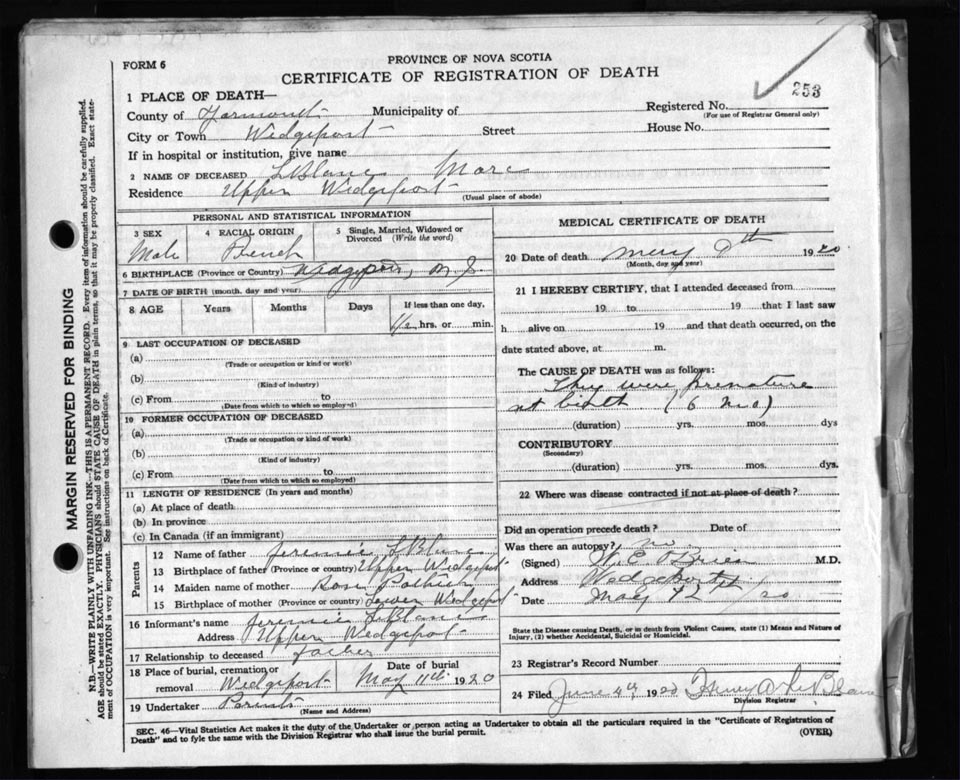 FORM 6
PROVINCE OF NOVA SCOTIA
CERTIFICATE OF REGISTRATION OF DEATH
253
1 PLACE OF DEATH—
County of Yarmouth Municipality of Registered No.
(For use of Registrar General only)
City or Town Wedgeport Street House No.
If in hospital or institution, give name
2 NAME OF DECEASED LeBlanc Marc
Residence Upper Wedgeport
(Usual place of abode)
PERSONAL AND STATISTICAL INFORMATION
3 SEX 4 RACIAL ORIGIN 5 Single, Married, Widowed or Divorced (Write the word)
Male French
6 BIRTHPLACE (Province or Country) Wedgeport, N.S.
7 DATE OF BIRTH (month, day and year)
8 AGE Years Months Days If less than one day,
1/2 hrs. or min.
9 LAST OCCUPATION OF DECEASED
(a)
(Trade or occupation or kind of work)
(b)
(Kind of industry)
(c) From to
(Date from which to which so employed)
10 FORMER OCCUPATION OF DECEASED
(a)
(Trade or occupation or kind of work)
(b)
(Kind of industry)
(c) From to
(Date from which to which so employed)
11 LENGTH OF RESIDENCE (In years and months)
(a) At place of death
(b) In province
(c) In Canada (if an immigrant)
Parents
12 Name of father Jeremie LeBlanc
13 Birthplace of father (Province or country) Upper Wedgeport
14 Maiden name of mother Rose Pothier
15 Birthplace of mother (Province or country) Lower Wedgeport
16 Informant's name Jeremie LeBlanc
Address Upper Wedgeport
17 Relationship to deceased father
18 Place of burial, cremation or removal Wedgeport Date of burial May 11th 1920
19 Undertaker Parents
(Name and Address)
MEDICAL CERTIFICATE OF DEATH
20 Date of death May 9th 1920
(Month, day and year)
21 I HEREBY CERTIFY, that I attended deceased from
19 to 19 that I last saw
h alive on 19 and that death occurred, on the
date stated above, at m.
The CAUSE OF DEATH was as follows:
They were premature
at birth (6 mo)
(duration) yrs. mos. dys
CONTRIBUTORY
(Secondary)
(duration) yrs. mos. dys.
22 Where was disease contracted if not at place of death?
Did an operation precede death? Date of
Was there an autopsy? no
(Signed) O'Brien M.D.
Address Wedgeport
Date May 12/20
State the Disease causing Death, or in death from Violent Causes, state (1) Means and Nature of
Injury, (2) whether Accidental, Suicidal or Homicidal.
23 Registrar's Record Number
24 Filed June 4th 1920 LeBlanc
Division Registrar
SEC. 46—Vital Statistics Act makes it the duty of the Undertaker or person acting as Undertaker to obtain all the particulars required in the "Certificate of Registration of
Death" and to fyle the same with the Division Registrar who shall issue the burial permit. (OVER)
MARGIN RESERVED FOR BINDING
N.B.—WRITE PLAINLY WITH UNFADING INK—THIS IS A PERMANENT RECORD. Every item of information should be carefully supplied.
AGE should be stated EXACTLY. PHYSICIANS should STATE CAUSE OF DEATH in plain terms, so that it may be properly classified. Exact statement of OCCUPATION is very important. See instructions on back of Certificate.